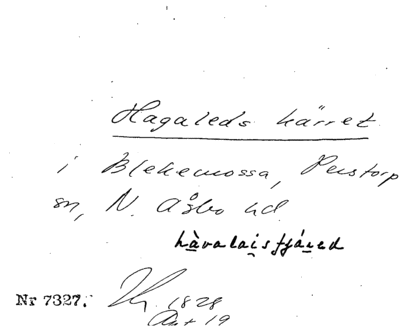 Hagaleds kärret
i Blekemossa, Perstorp
sn, N. Åsbo hd
hàvalai̯sfjáred
Nr 7327. 1828
Ant 19